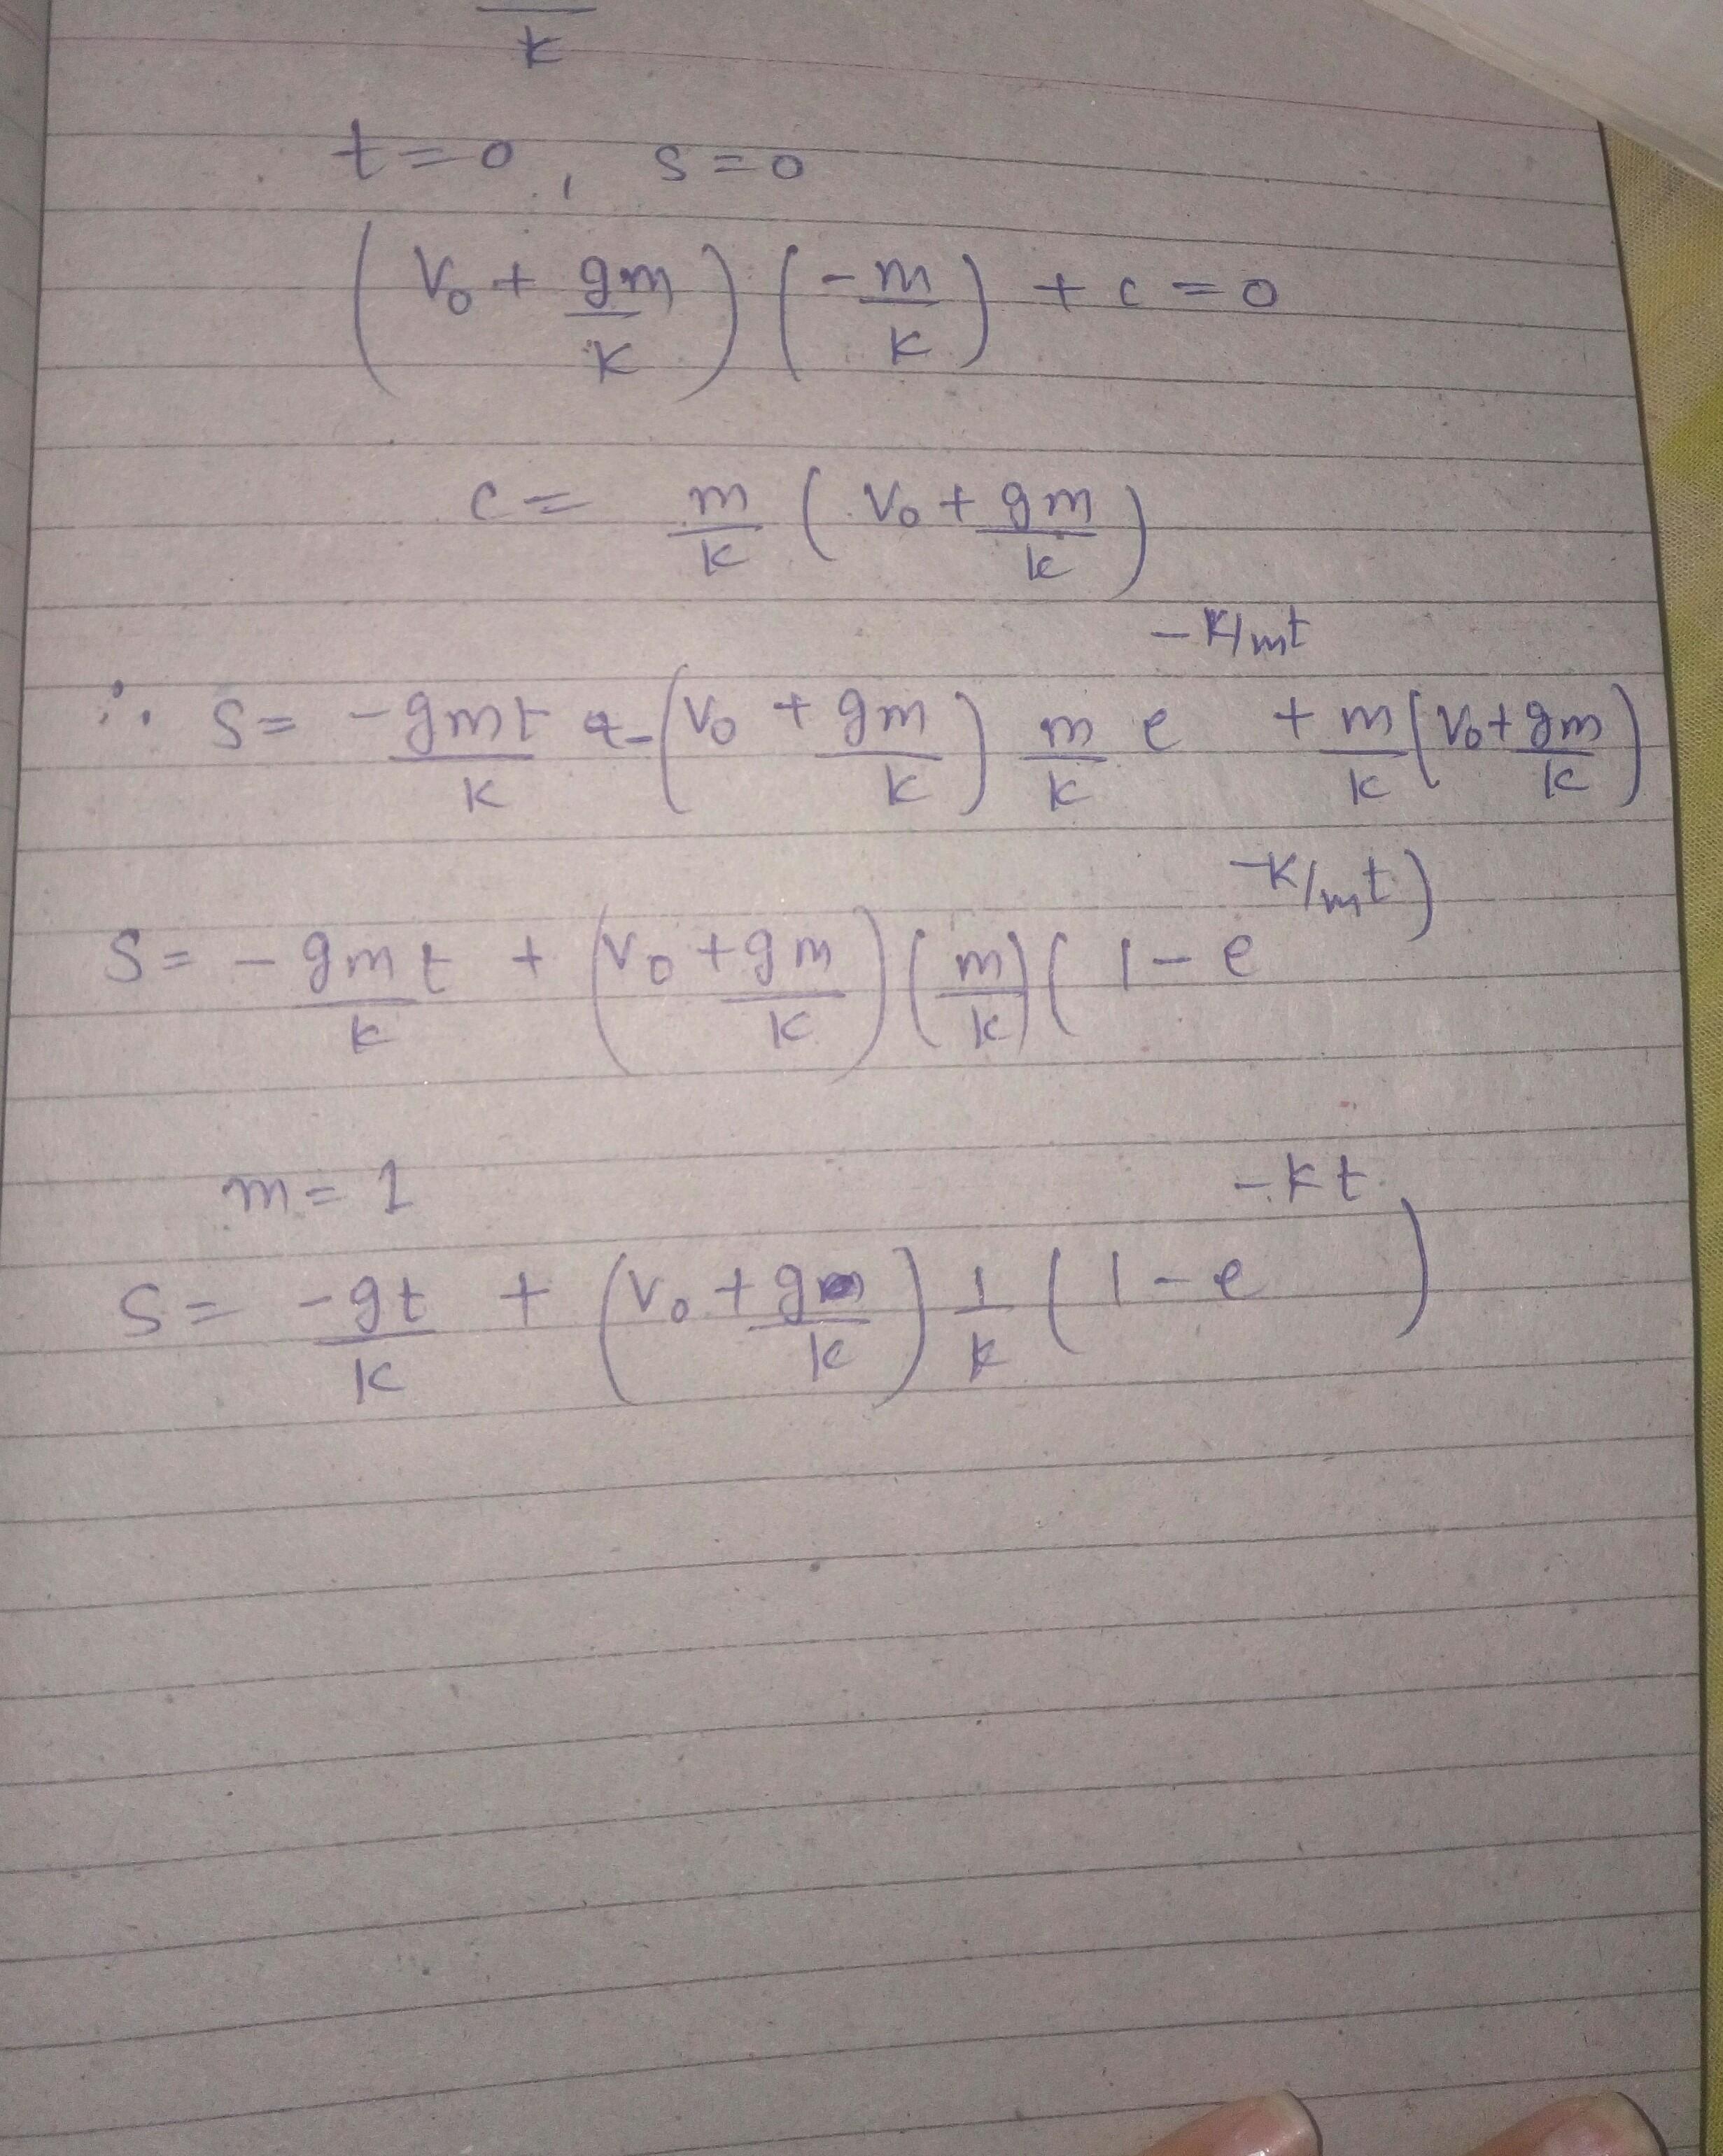 k
t = 0, s = 0
(V₀ + gm/k) (-m/k) + c = 0
c = m/k (V₀ + gm/k)
∴ s = -gmt/k - (V₀ + gm/k) m/k e^(-k/m t) + m/k (V₀ + gm/k)
s = -gmt/k + (V₀ + gm/k) (m/k) (1 - e^(-k/m t))
m = 1
s = -gt/k + (V₀ + g/k) 1/k (1 - e^(-kt))